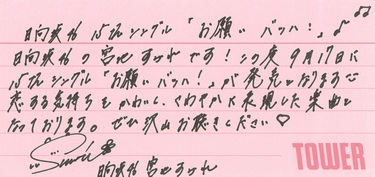 日向坂46 15thシングル「お願いバッハ!」♪
日向坂46の宮地すみれです!この度9月17日に
15thシングル「お願いバッハ!」が発売となります♡
恋する気持ちをかわいく、さわやかに表現した楽曲と
なっております。ぜひ沢山お聴きください♡
日向坂46 宮地すみれ
TOWER